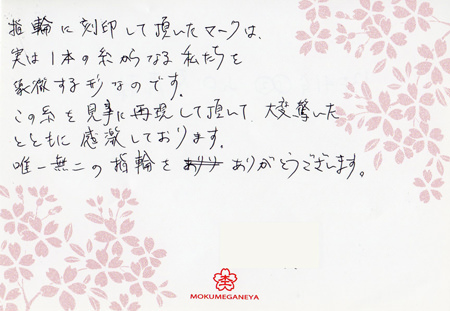 指輪に刻印して頂いたマークは、
実は1本の糸からなる私たちを
象徴する形なのです。
この糸を見事に再現して頂いて、大変驚いた
とともに感激しております。
唯一無二の指輪を ありがとうございます。
MOKUMEGANEYA